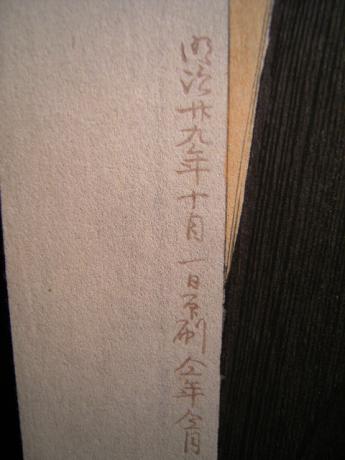 明治廿九年十月一日印刷仝年仝月